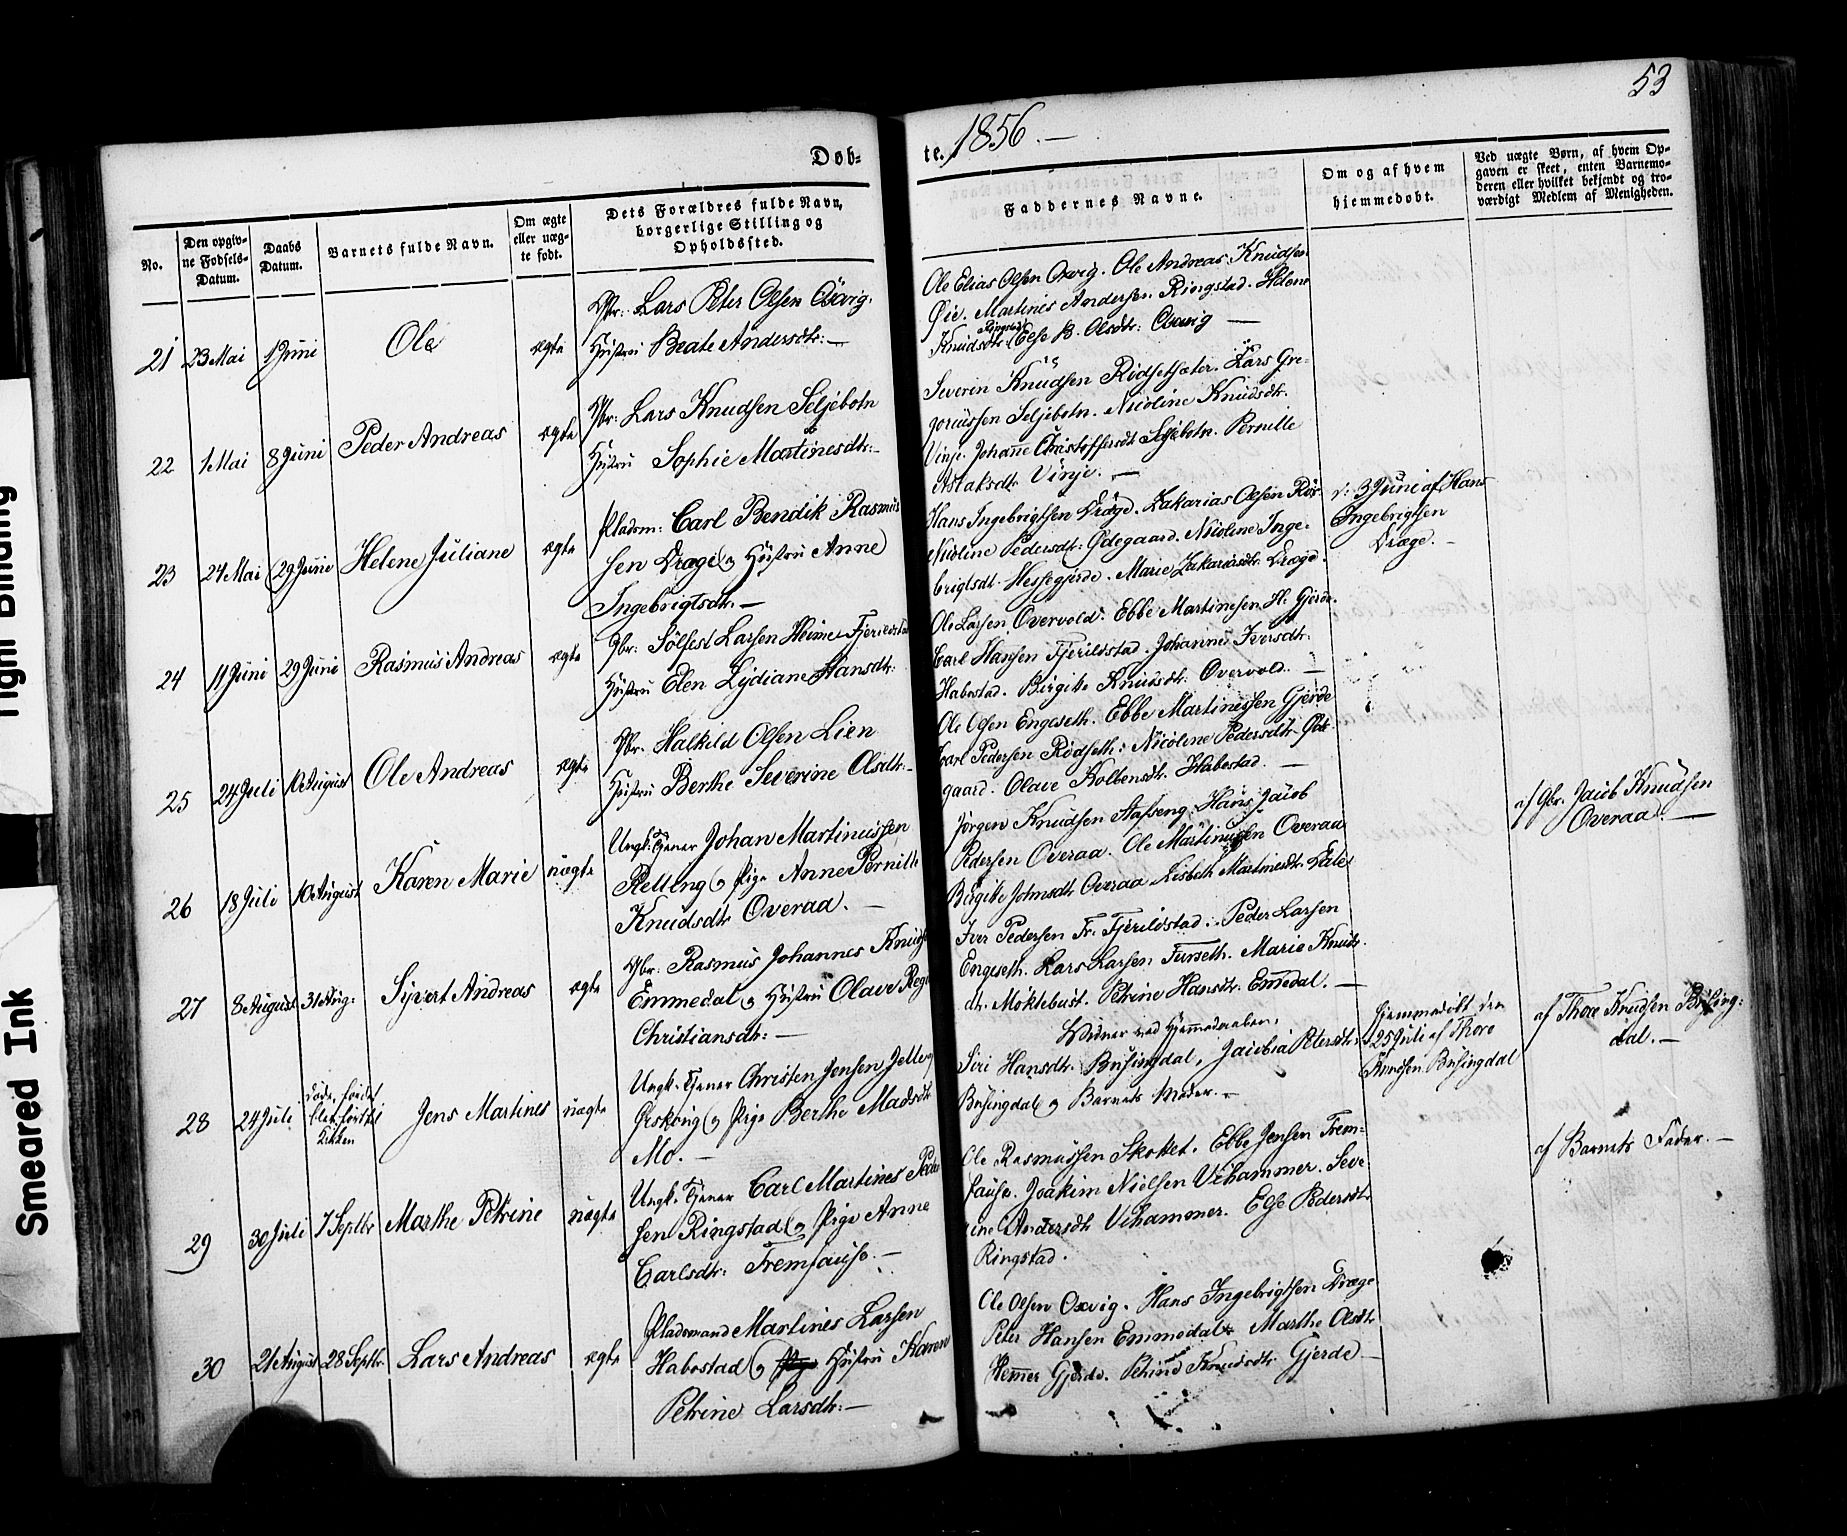 53
Døb-
te. 1856.—
No.
Den opgiv-
ne Fødsels-
Datum.
Daabs
Datum.
Barnets fulde Navn.
Om ægte
eller uæg-
te født.
Dets Forældres fulde Navn,
borgerlige Stilling og
Opholdssted.
Faddernes Navne.
Om og af hvem
hjemmedøbt.
Ved uægte Børn, af hvem Op-
gaven er skeet, enten Barnemo-
deren eller hvilket bekjendt og tro-
værdigt Medlem af Menigheden.
21 23 Mai 1 Juni Ole ægte
Gbr: Lars Peter Olsen Oxvig.
Hustru Beate Andersdtr:—
Ole Elias Olsen Oxvig. Ole Andreas Knudsen
Øie. Martines Andersen Ringstad. Helene
Knudsdtr Ringstad Else B. Olsdtr: Oxvig —
22 1 Mai 8 Juni Peder Andreas ægte
Gbr: Lars Knudsen Seljebotn
Hustru Sophie Martinesdtr:—
Severin Knudsen Rødsetsæter. Lars Gre-
goriussen Seljebotn. Nicoline Knudsdtr.
Vinje. Johanne Christoffersdt Seljebotn. Pernille
Aslaksdtr Vinje. —
23 24 Mai 29 Juni Helene Juliane ægte
Pladsm: Carl Bendik Rasmus
sen Dræge og Hustru Anne
Ingebrigtsdtr. —
Hans Ingebrigtsen Dræge. Zakarias Olsen
Nicoline Pedersdt: Ødegaard. Nicoline Inge-
brigtsdt. Hessegjerde. Marie Zakariasdtr Dræge.
d: 3 Juni af Hans
Ingebrigtsen
Dræge. —
24 11 Juni 29 Juni Rasmus Andreas ægte
Gbr: Sølfest Larsen Fjerildstad
Hustru Elen Lydiane Hansdtr:
Ole Larsen Overvold. Ebbe Martinesen H. Gjerde.
Carl Hansen Fjerildstad. Johanne Iversdtr.
Habostad. Birgite Knudsdtr. Overvold. —
25 24 Juli 10 August Ole Andreas ægte
Gbr. Halkild Olsen Lien
Hustru Berthe Severine Olsdtr.—
Ole Olsen Engeseth. Ebbe Martinessen Gjerde
Karl Pedersen Rødseth: Nicoline Pedersdtr Øde-
gaard. Olave Kolbensdtr. Habostad. —
26 18 Juli 10 August Karen Marie uægte
Ungk: Tjener Johan Martinussen
Relling og Pige Anne Pernille
Knudsdtr Overaa. —
Jørgen Knudsen Hans Jacob
Pedersen Overaa. Ole Martinussen Overaa
Birgite Johnsdtr Overaa Lisbeth Martinesdtr
af Gbr. Jacob Knudsen
Overaa. —
27 8 August 31 Aug: Syvert Andreas ægte
Gbr: Rasmus Johannes Knudsen
Emmedal og Hustru Olave
Christiansdtr: —
Iver Pedersen Fr. Fjerildstad. Peder Larsen
Engeseth. Lars Larsen Furseth. Marie Knuds-
dtr. Møklebust. Petrine Hansdtr. Emedal. —
28 24 Juli Jens Martines uægte
Døde førend
Kirken
Ungk. Tjener Christen Jensen
Ørskoug og Pige Berthe Madsdtr
Mo. —
Vidner ved Hjemmedaaben.
Siri Hansdtr. Brusingdal, Jacobia Petersdtr:
Brusingdal og Barnets Moder. —
Hjemmedøbt den
25 Juli af Thore
Knudsen Brusingdal
af Thore Knudsen Brusing:
dal. —
29 30 Juli 7 Septbr Marthe Petrine uægte
Ungk. Tjener Carl Martines Peder
sen Ringstad og Pige Anne
Carlsdtr: Fremsauso. —
Ole Rasmussen Skottet. Ebbe Jensen Frem-
sauso. Joakim Nielsen Vehammer. Seve
rine Andersdtr Vehammer. Else Pedersdtr.
Ringstad.
af Barnets Fader. —
30 21 August 28 Septbr. Lars Andreas ægte
Pladsmand Martines Larsen
Habostad og Hustru Karen
Petrine Larsdtr: —
Ole Olsen Oxvig. Hans Ingebrigtsen Dræge
Peter Hansen Emmedal Marthe Olsdtr
Gjerde. Petrine Knudsdtr. Gjerde —
Tight Binding
Smeared Ink